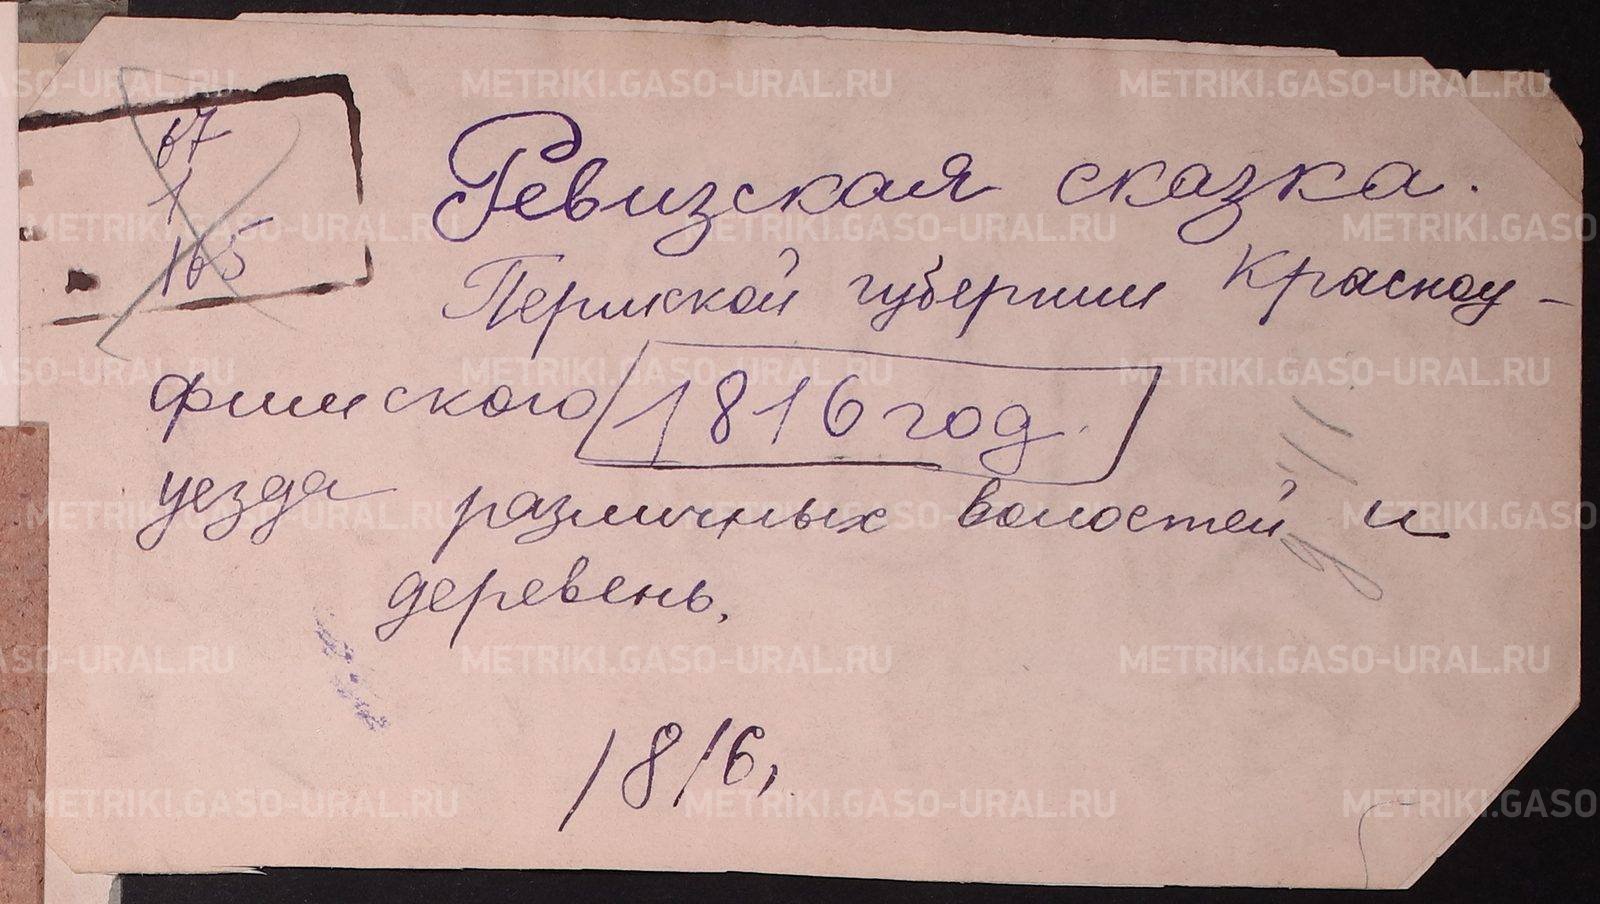 67
1
165
Ревизская сказка.
Пермской губернии Красноу-
фимского 1816 год.
уезда различных волостей и
деревень.
1816,
METRIKI.GASO-URAL.RU